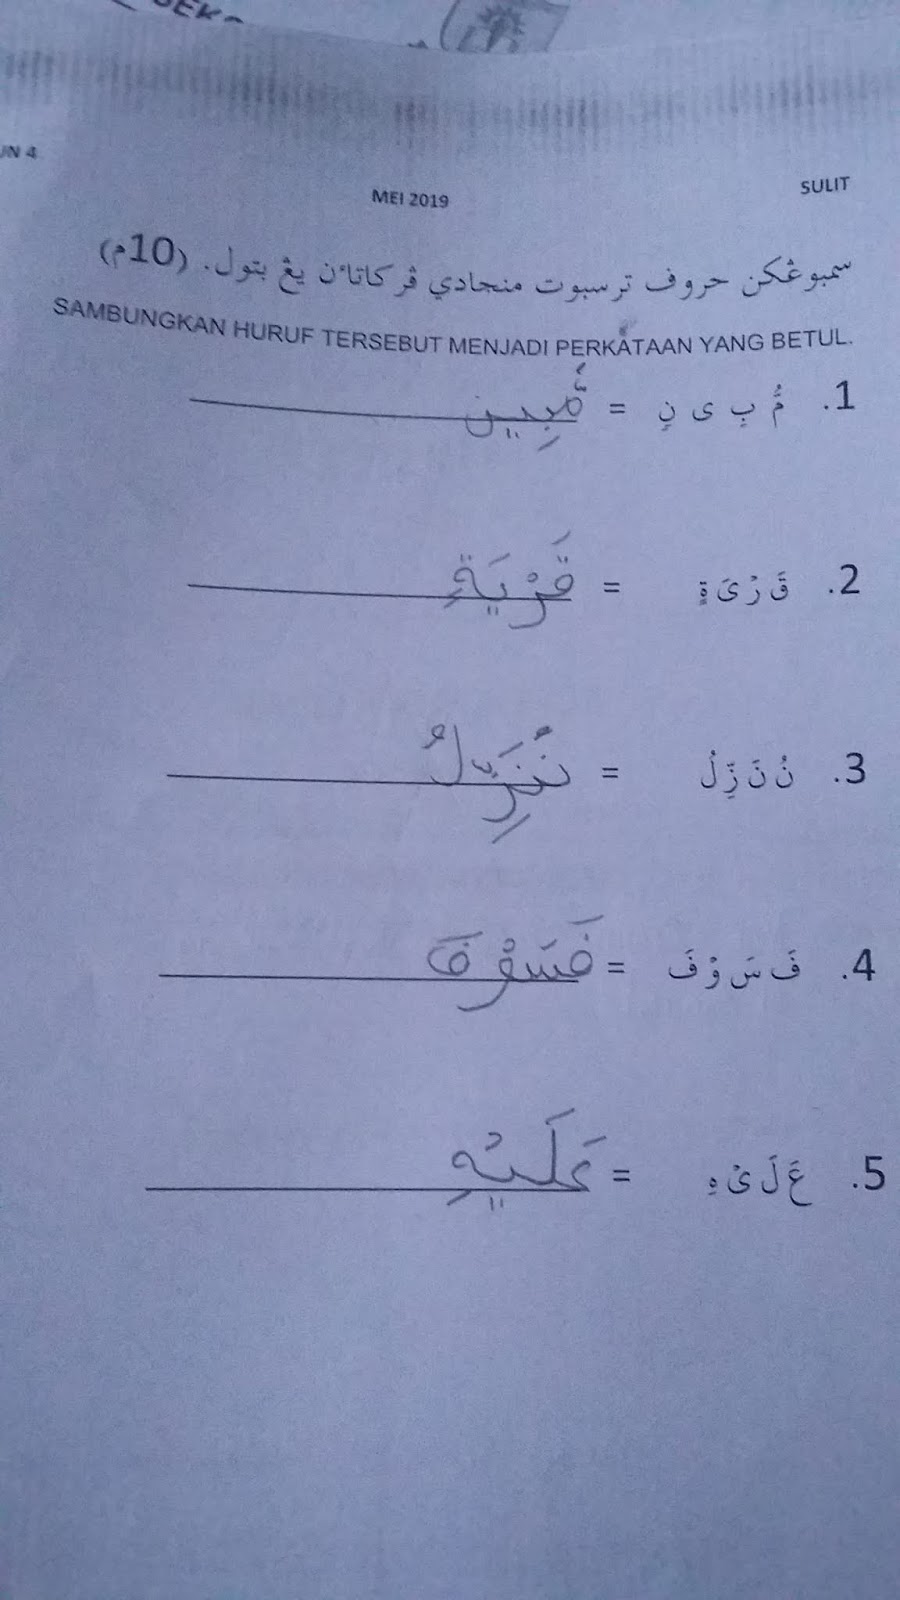 UN 4
MEI 2019
SULIT
سمبوڠكن حروف ترسبوت منجادي ڤركاتاءن يڠ بتول. (10م)
SAMBUNGKAN HURUF TERSEBUT MENJADI PERKATAAN YANG BETUL.
1. مُّ بِ ى نٍ = مُّبِينٍ
2. قَ رْ ىَ ةٍ = قَرْيَةٍ
3. نُ نَ زِّ لُ = نُنَزِّلُ
4. فَ سَ وْ فَ = فَسَوْفَ
5. عَ لَ ىْ هِ = عَلَيْهِ